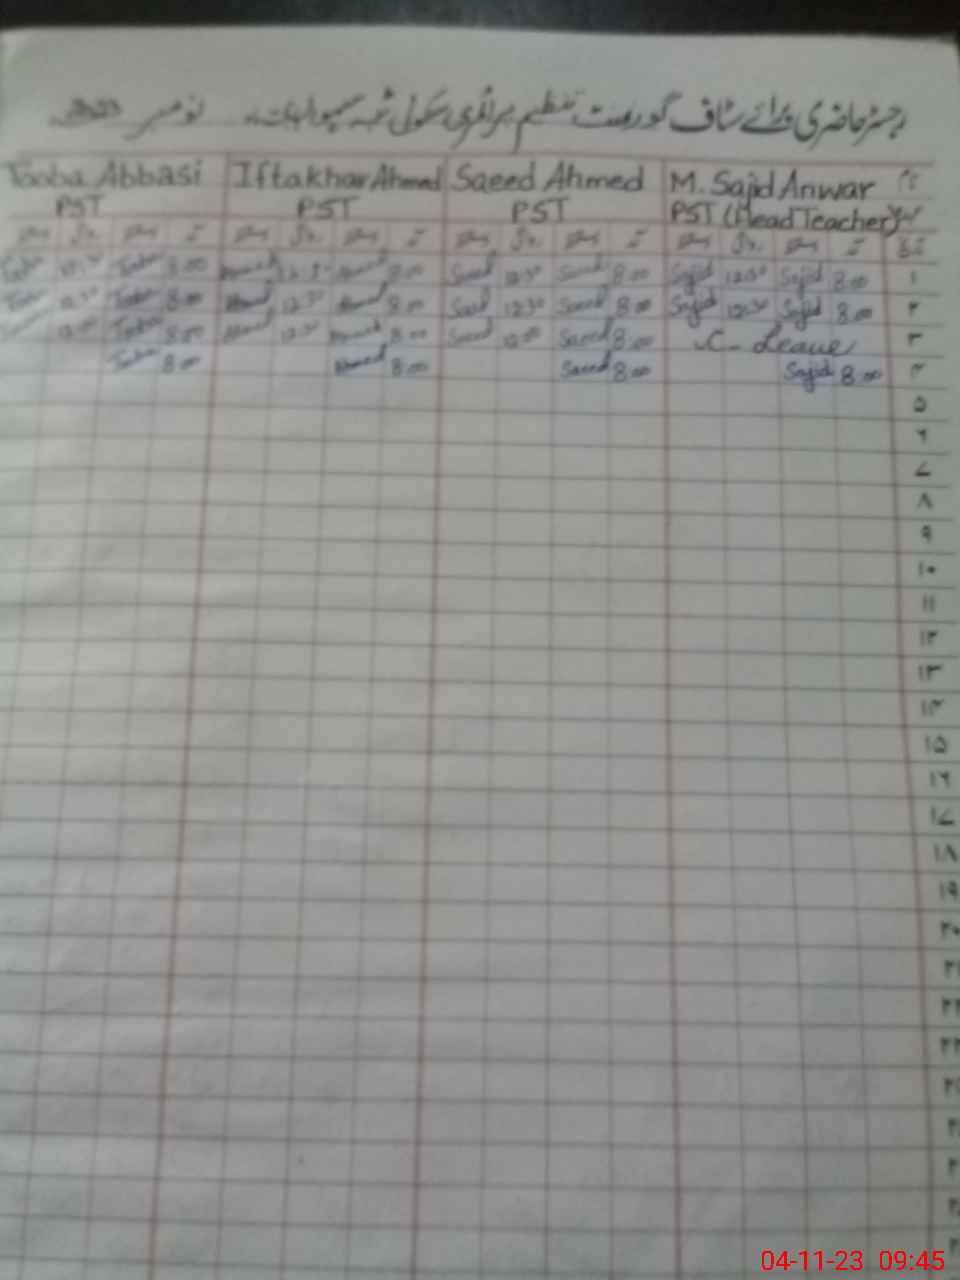 رجسٹر حاضری برائے سٹاف گورنمنٹ تنظیم پرائمری سکول نومبر 2023
Tooba Abbasi Iftakhar Ahmed Saeed Ahmed M. Sajid Anwar نام
PST PST PST PST (Head Teacher)
Tooba 8:00 Ahmed 12:30 Ahmed 8:00 Saeed 12:30 Saeed 8:00 Sajid 12:30 Sajid 8:00 ۱
Tooba 12:30 Tooba 8:00 Ahmed 12:30 Ahmed 8:00 Saeed 12:30 Saeed 8:00 Sajid 12:30 Sajid 8:00 ۲
12:00 Tooba 8:00 Ahmed 12:30 Ahmed 8:00 Saeed 12:00 Saeed 8:00 C- Leave ۳
Tooba 8:00 Ahmed 8:00 Saeed 8:00 Sajid 8:00 ۴
۵
۶
۷
۸
۹
۱۰
۱۱
۱۲
۱۳
۱۴
۱۵
۱۶
۱۷
۱۸
۱۹
۲۰
04-11-23 09:45